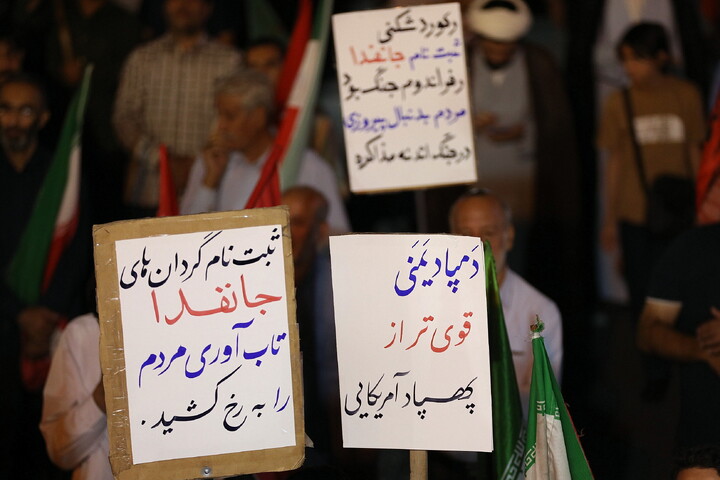 رکورد شکنی
ثبت نام جانفدا
رفراندوم جنگ بود
مردم بدنبال پیروزی
در جنگ اند نه مذاکره
ثبت نام گردان های
جانفدا
تاب آوری مردم
را به رخ کشید.
دمپاد یمنی
قوی تر از
پهپاد آمریکایی